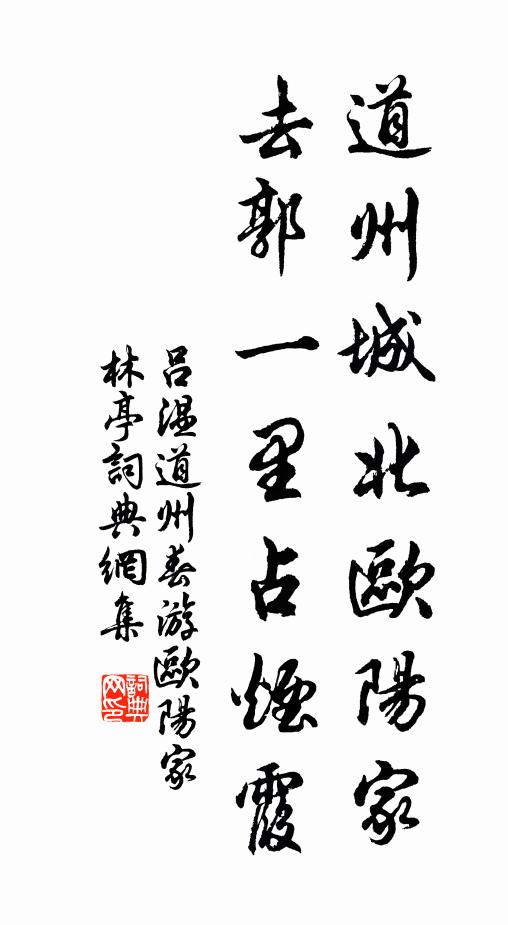 道州城北歐陽家
去郭一里占煙霞
呂溫道州春游歐陽家
林亭詞典網集
詞典
网印